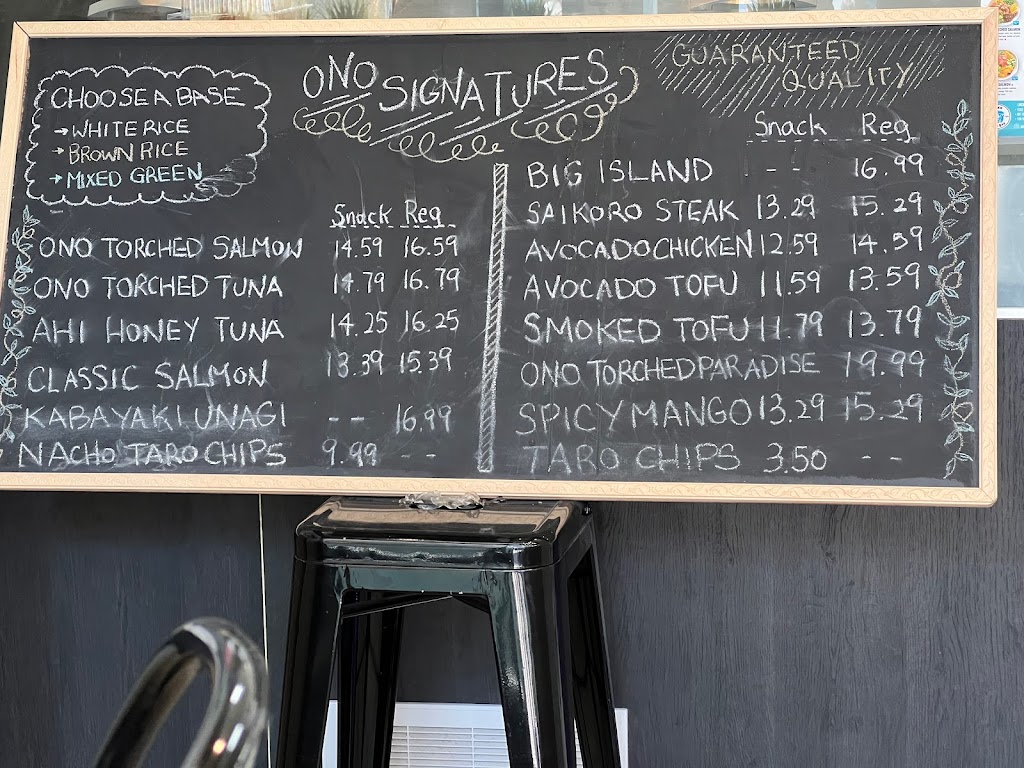 ONO SIGNATURES
GUARANTEED
QUALITY
CHOOSE A BASE
→ WHITE RICE
→ BROWN RICE
→ MIXED GREEN
Snack Reg
ONO TORCHED SALMON 14.59 16.59
ONO TORCHED TUNA 14.79 16.79
AHI HONEY TUNA 14.25 16.25
CLASSIC SALMON 13.39 15.39
KABAYAKI UNAGI -- 16.99
NACHO TARO CHIPS 9.99 --
Snack Reg
BIG ISLAND -- 16.99
SAIKORO STEAK 13.29 15.29
AVOCADO CHICKEN 12.59 14.59
AVOCADO TOFU 11.59 13.59
SMOKED TOFU 11.79 13.79
ONO TORCHED PARADISE 19.99
SPICY MANGO 13.29 15.29
TARO CHIPS 3.50 --